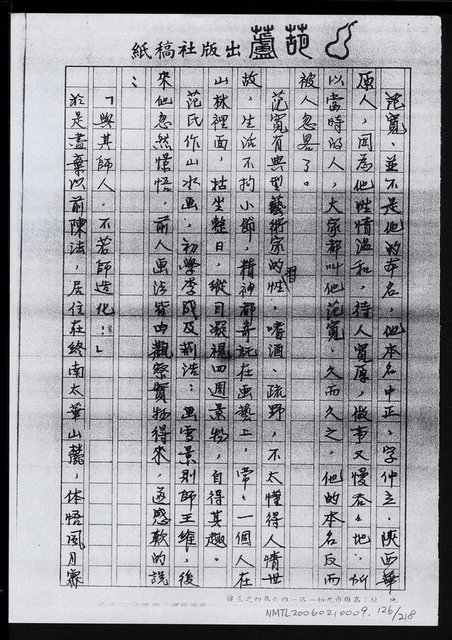 葫蘆出版社稿紙
范寬，並不是他的本名，他本名中正，字仲立，陝西華
原人，因為他性情溫和，待人寬厚，做事又慢吞吞地，所
以當時的人，大家都叫他范寬，久而久之，他的本名反而
被人忽畧了。
范寬有典型藝術家的習性，嗜酒、疏野，不太懂得人情世
故，生活不拘小節，精神都寄託在画藝上，常常一個人在
山林裡面，枯坐整日，縱目凝視四週景物，自得其趣。
范氏作山水画，初學李成及荊浩；画雪景則師王維；後
來他忽然憬悟，前人画法皆由觀察實物得來，遂感歎的說
：
「與其師人，不若師造化……」
於是盡棄以前陳法，居住在終南太華山麓，体悟風月霽
NMTL20060210009, 126/218